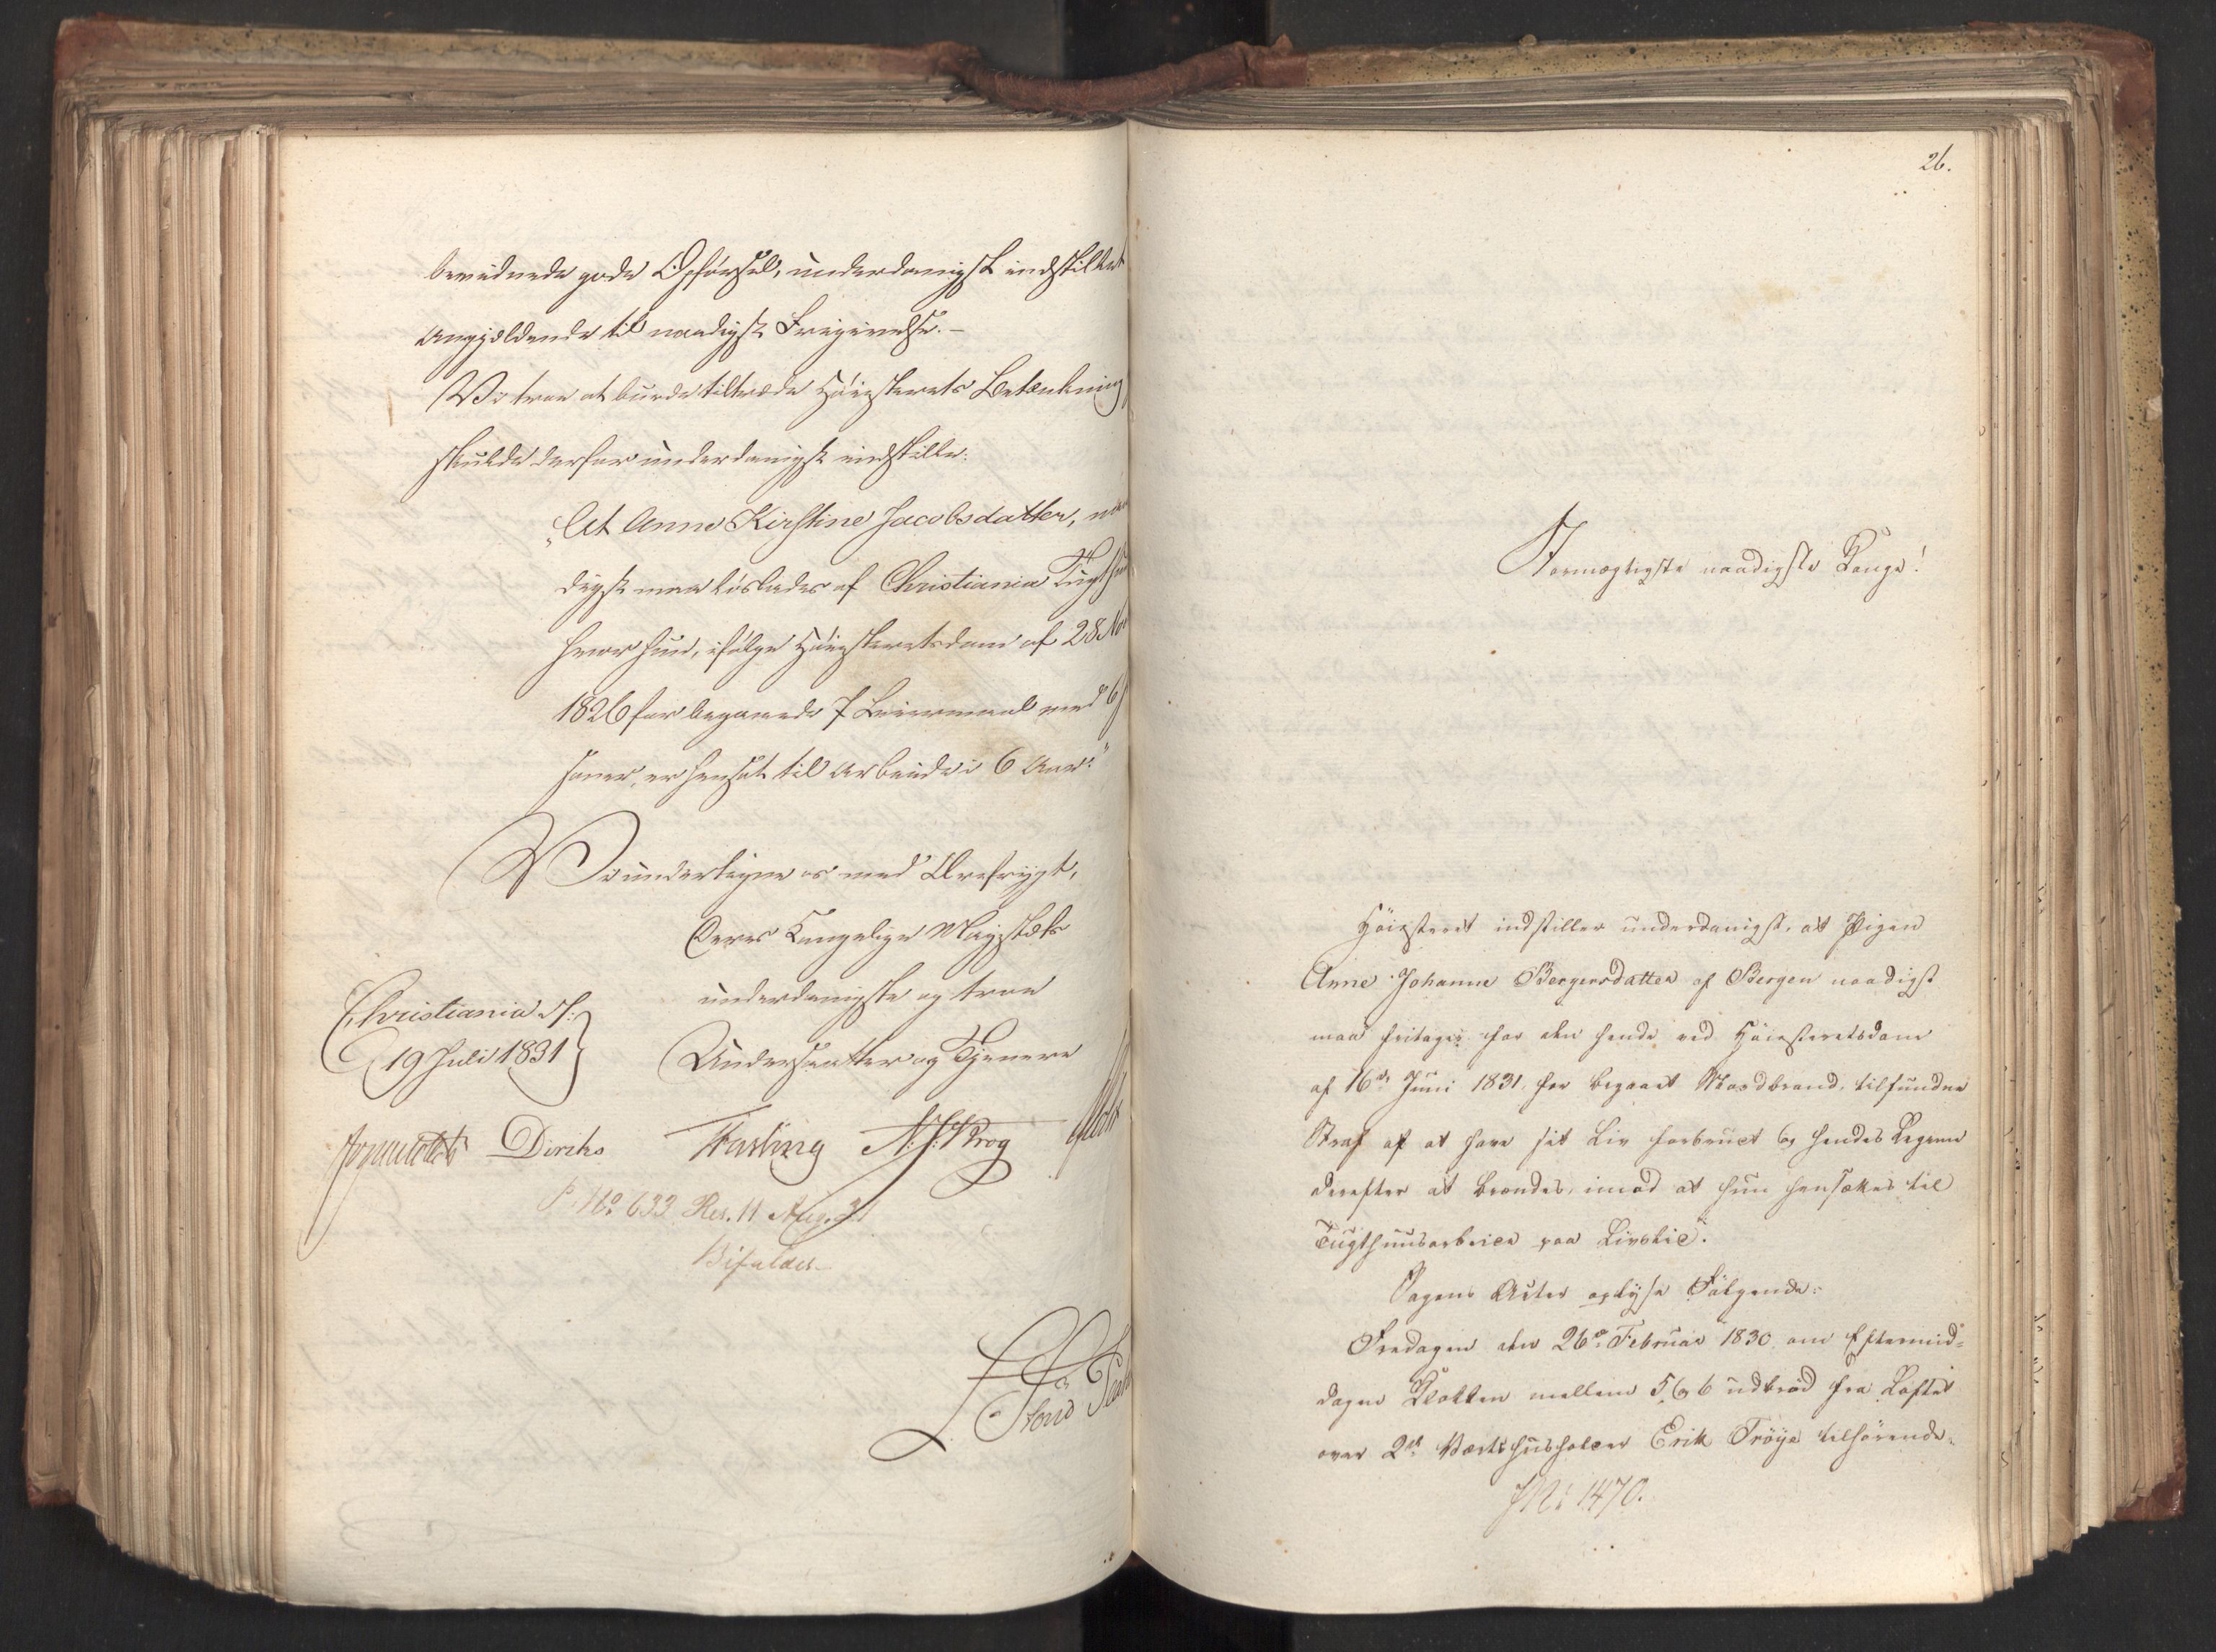 beviidnede gode Opførsel, underdanigst indstillet
Angjældende til naadigst Frigivelse.—
Vi troe at burde tiltræde Høiesterets Betænkning
skulde derfor underdanigst indstille:
„At Anne Kirstine Jacobsdatter, naa
digst maa løslades af Christiania Tugthuus
hvor hun, ifølge Høiesteretsdom af 28 Nov
1826 for begaaede 7 Leiermaal med 6
soner, er hensat til Arbeide i 6 Aar."
Vi undertegne os med Ærefrygt,
Deres Kongelige Majestæts
underdanigste og troe
Undersaatter og Tjenere
Christiania d:
19 Juli 1831
Diriks Fasting N. J. Krog
P. No 633 Res. 11 Aug. 31
Bifaldes
26.
Stormægtigste naadigste Konge!
Höiesteret indstiller underdanigst, at Pigen
Anne Johanne Bergersdatter af Bergen naadigst
maa fritages for den hende ved Höiesteretsdom
af 16de Juni 1831, for begaaet Mordbrand, tilfundne
Straf af at have sit Liv forbrudt og hendes Legeme
derefter at brændes, imod at hun hensættes til
Tugthuusarbeide paa Livstid.
Sagens Acter oplyse Fölgende:
Fredagen den 26de Februar 1830 om Eftermid=
dagen Klokken mellem 5 og 6 udbröd fra Loftet
over 2de Værtshuusholder Erik Tröye tilhörende
JNr 1470.